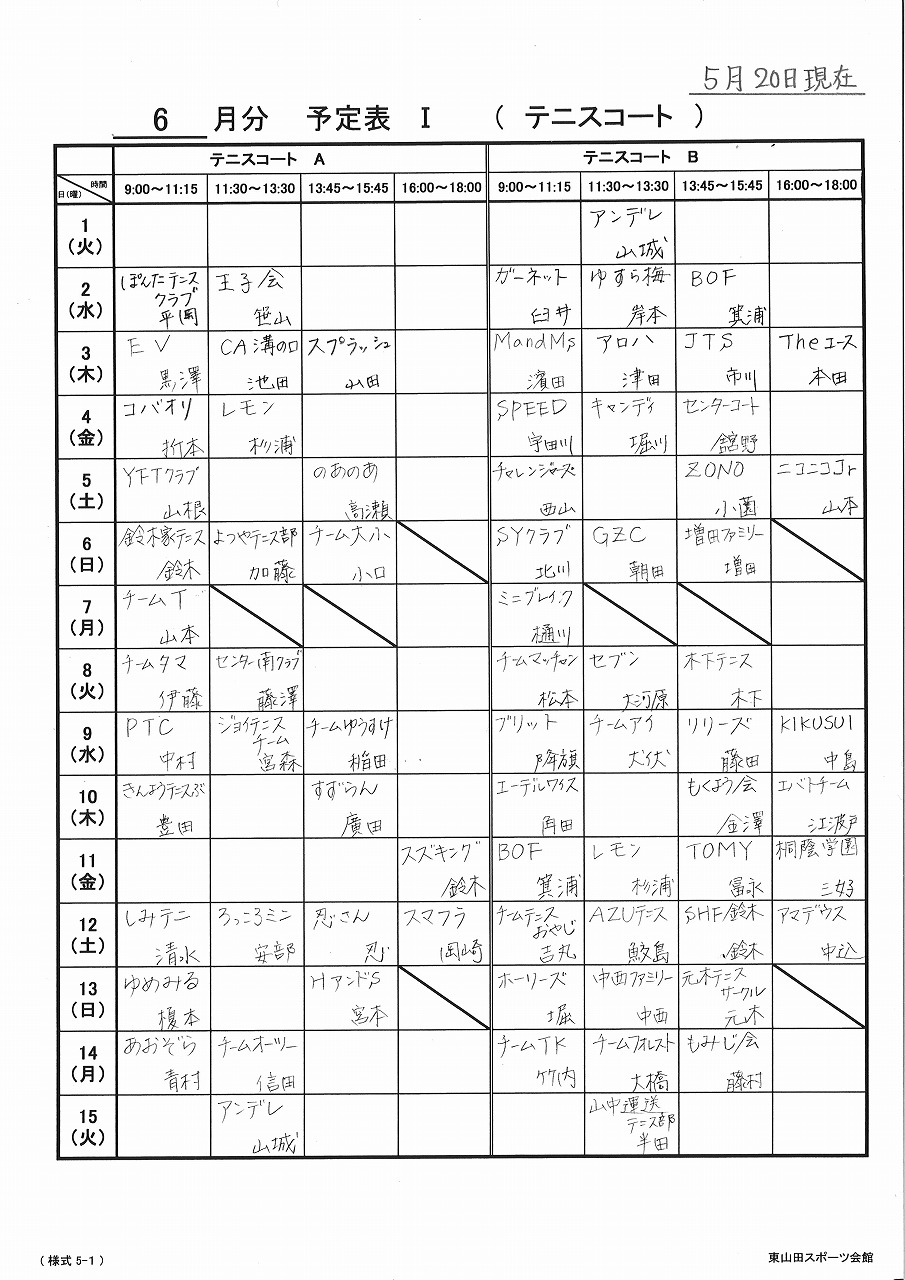 5月20日現在
6 月分 予定表 Ⅰ ( テニスコート )
テニスコート A テニスコート B
時間
日(曜)
9:00～11:15 11:30～13:30 13:45～15:45 16:00～18:00 9:00～11:15 11:30～13:30 13:45～15:45 16:00～18:00
1
(火)
アンデレ
山城
2
(水)
ぽんたテニス 王子会 ガーネット ゆすら梅 BOF
クラブ
平岡 笹山 臼井 岸本 箕浦
3
(木)
EV CA溝の口 スプラッシュ MandMs アロハ JTS Theエース
黒澤 池田 山田 濱田 津田 市川 本田
4
(金)
コバオリ レモン SPEED キャンディ センターコート
折本 杉浦 宇田川 堀川 舘野
5
(土)
YFTクラブ のあのあ チャレンジャーズ ZONO ニコニコJr
山根 高瀬 西山 小薗 山本
6
(日)
鈴木家テニス よつやテニス部 チーム大小 SYクラブ GZC 増田ファミリー
鈴木 加藤 小口 北川 朝田 増田
7
(月)
チームT ミニブレイク
山本 樋川
8
(火)
チームタマ センター南クラブ チームマッチャン セブン 木下テニス
伊藤 藤澤 松本 大河原 木下
9
(水)
PTC ジョイテニス チームゆうすけ ブリット チームアイ リリーズ KIKUSUI
チーム
中村 宮森 稲田 降旗 犬伏 藤田 中島
10
(木)
きんようテニスぶ すずらん エーデルワイス もくよう会 エバトチーム
豊田 廣田 角田 金澤 江波戸
11
(金)
スズキング BOF レモン TOMY 桐蔭学園
鈴木 箕浦 杉浦 冨永 三好
12
(土)
しみテニ ろっころミン 忍さん スマフラ チームテニス AZUテニス SHF鈴木 アマデウス
おやじ
清水 安部 忍 岡崎 吉丸 鮫島 鈴木 中込
13
(日)
ゆめみる HアンドS ホーリーズ 中西ファミリー 元木テニス
サークル
榎本 宮本 堀 中西 元木
14
(月)
あおぞら チームオーツー チームTK チームフォレスト もみじ会
青村 信田 竹内 大橋 藤村
15
(火)
アンデレ 山中運送
テニス部
山城 半田
(様式5-1) 東山田スポーツ会館